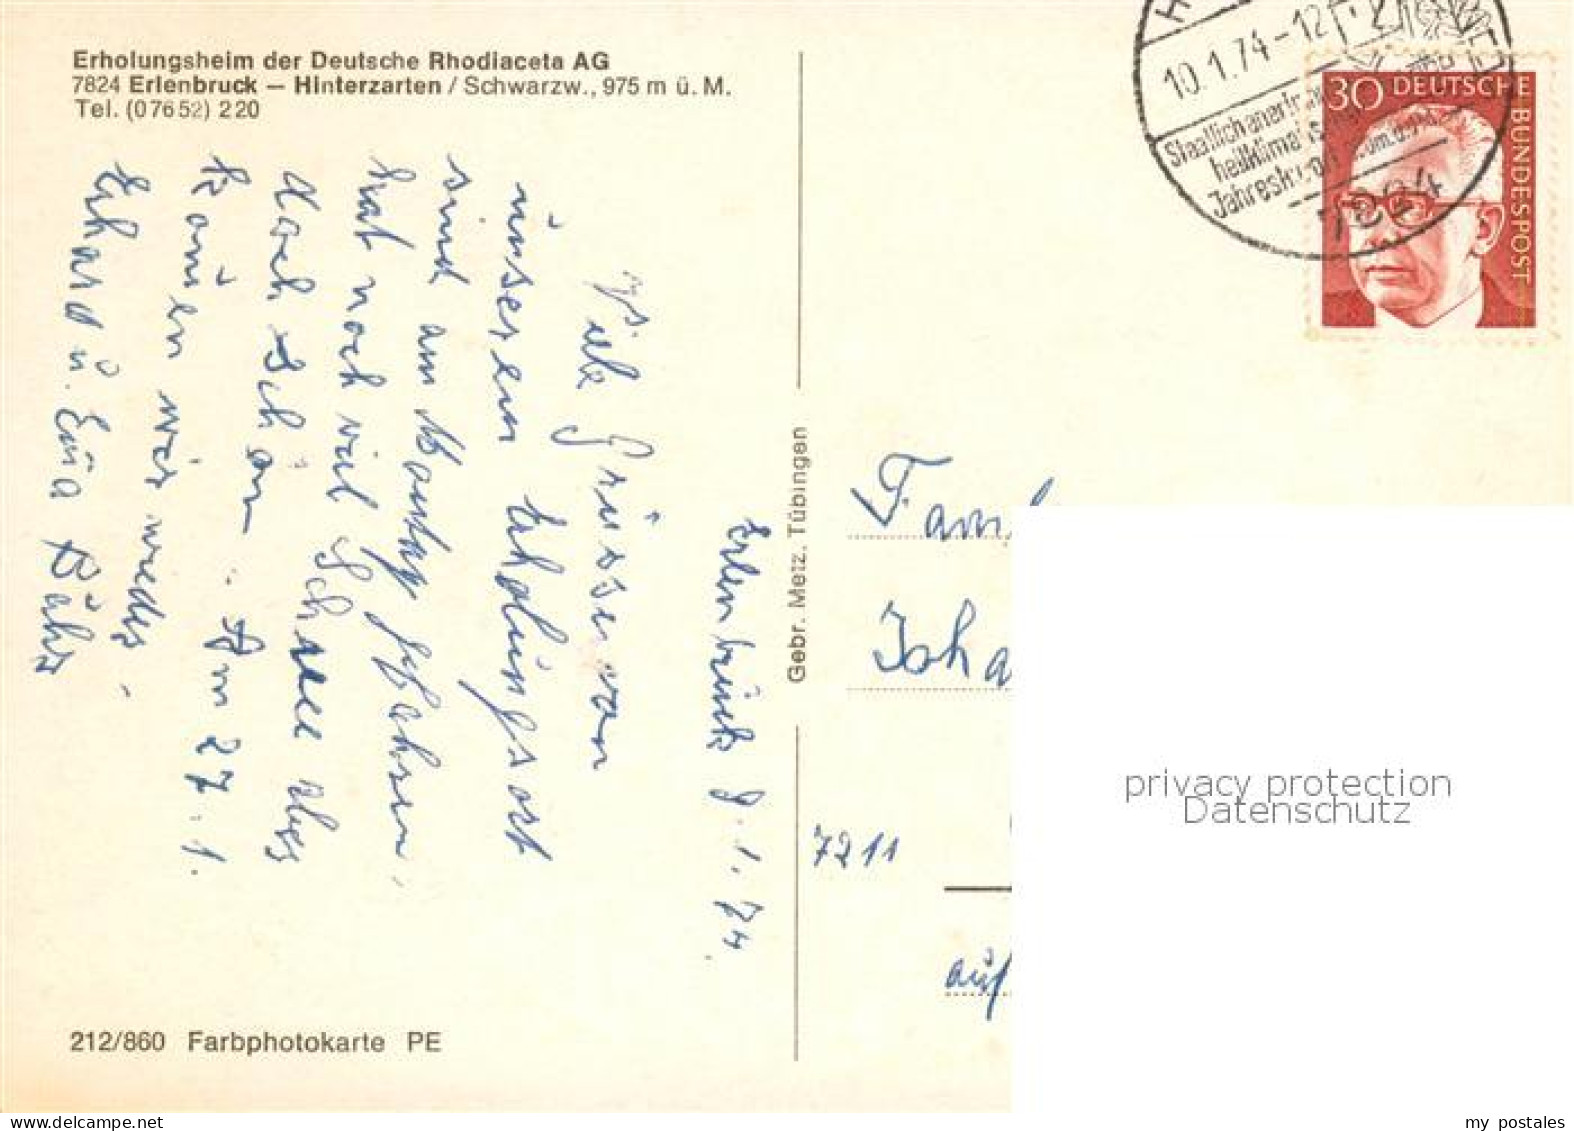 Erholungsheim der Deutsche Rhodiaceta AG
7824 Erlenbruck — Hinterzarten / Schwarzw., 975 m ü. M.
Tel. (07652) 220
Erlenbruck 9.1.74.
Viele Grüsse von
unserem Erholungsort
sind am Montag gefahren,
hat noch viel Schnee aber
doch schön. Am 27.1.
kommen wir wieder.
Erhard u. Erna
Gebr. Metz, Tübingen
212/860 Farbphotokarte PE
10.1.74-12
Jahres
7824
30 DEUTSCHE
BUNDESPOST
Fam
Joha
7211
auf
privacy protection
Datenschutz
my postales